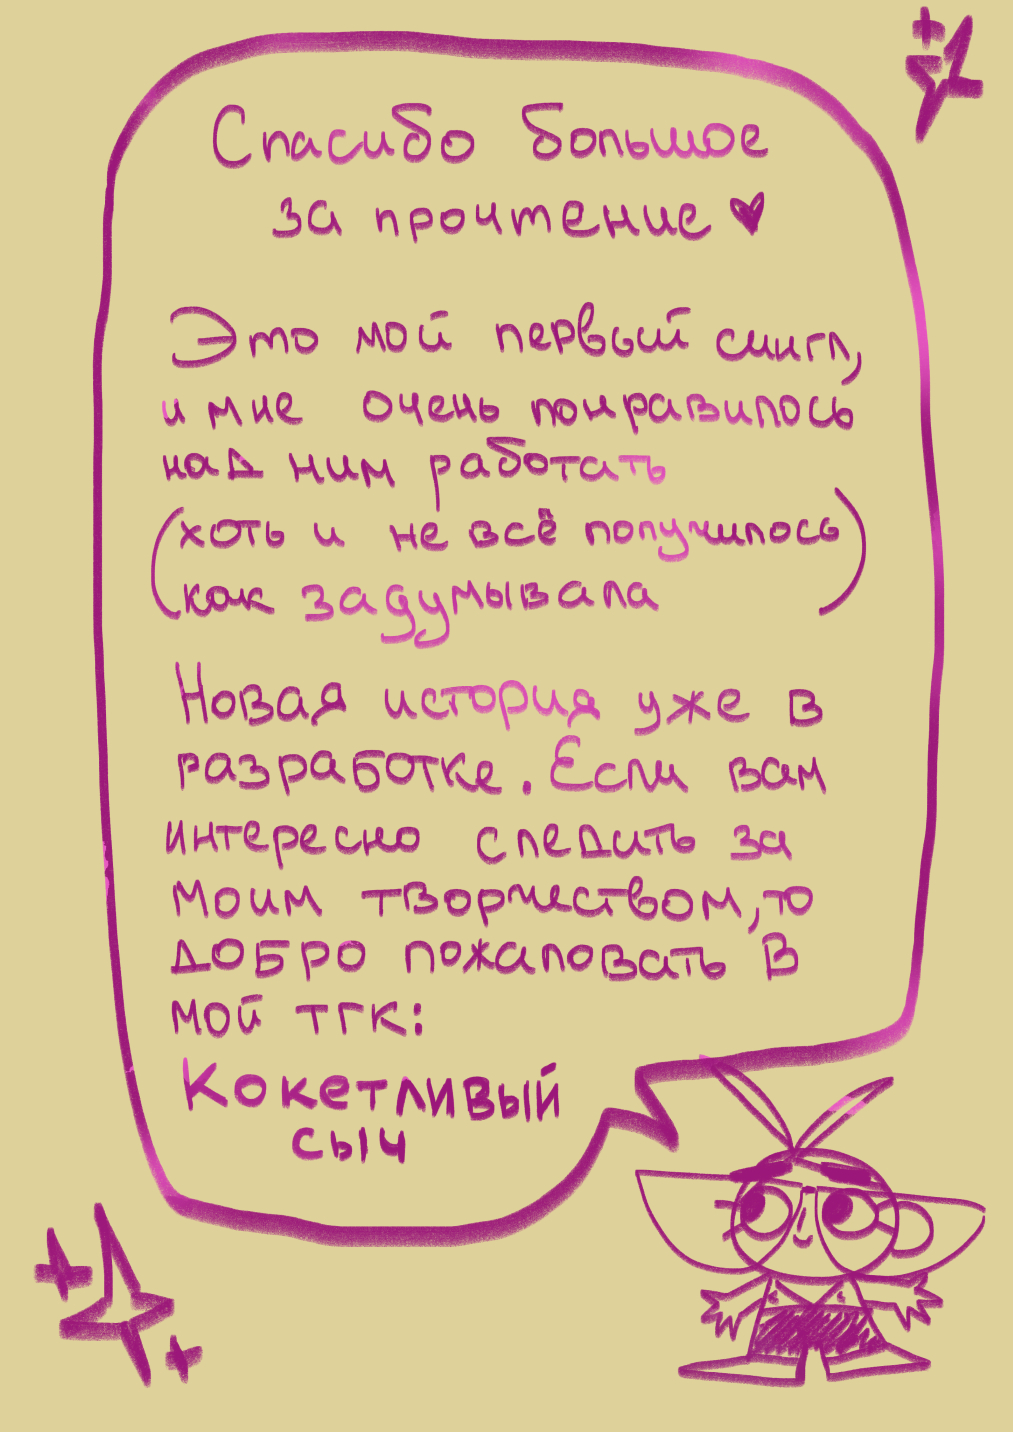 Спасибо большое
за прочтение ♥
Это мой первый сингл,
и мне очень понравилось
над ним работать
(хоть и не всё получилось
как задумывала)
Новая история уже в
разработке. Если вам
интересно следить за
моим творчеством, то
добро пожаловать в
мой тгк:
Кокетливый
сыч